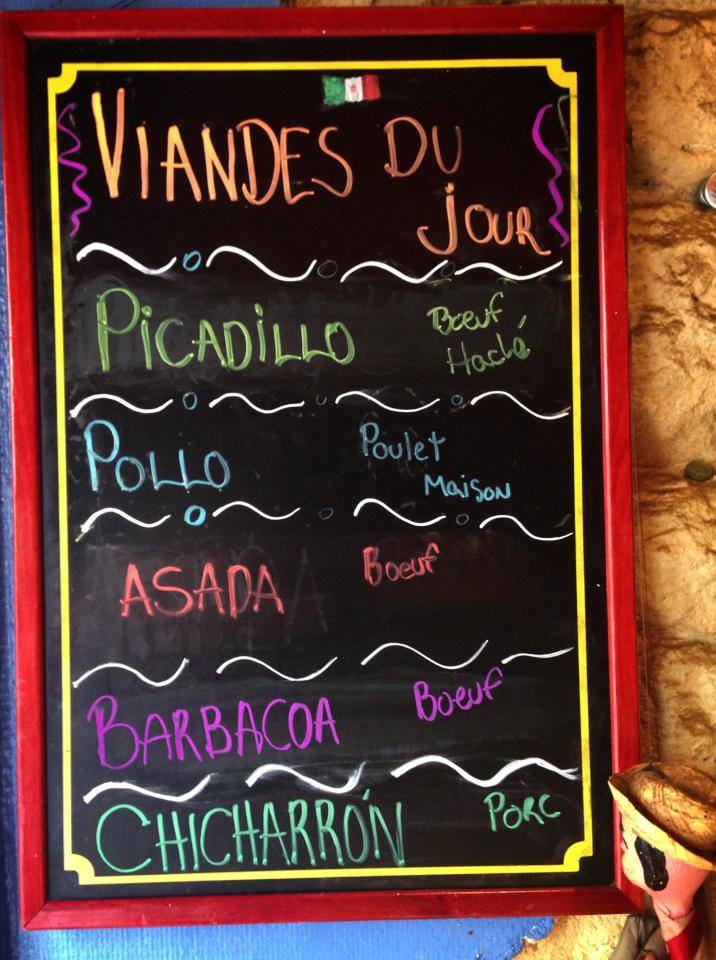 VIANDES DU
JOUR
PICADILLO Boeuf
Haché
POLLO Poulet
Maison
ASADA Boeuf
BARBACOA Boeuf
CHICHARRÓN PORC